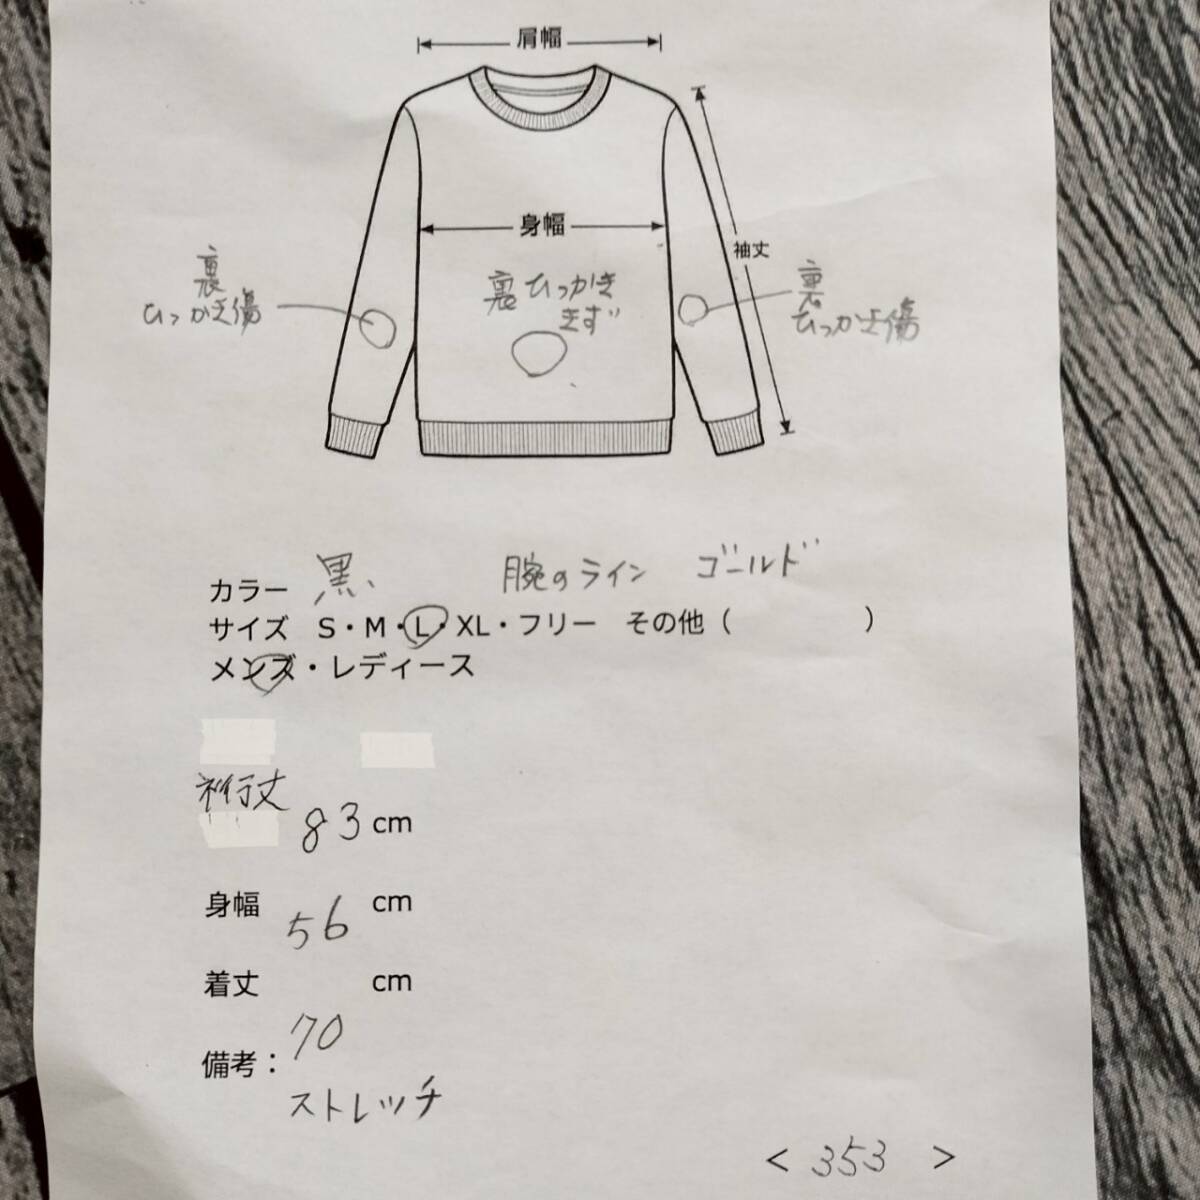 肩幅
身幅
袖丈
裏
ひっかき傷
裏ひっかき
きず
裏
ひっかき傷
カラー 黒、 腕のライン ゴールド
サイズ S・M・L・XL・フリー その他（ ）
メンズ・レディース
裄丈
83 cm
身幅 56 cm
着丈 cm
70
備考：
ストレッチ
< 353 >